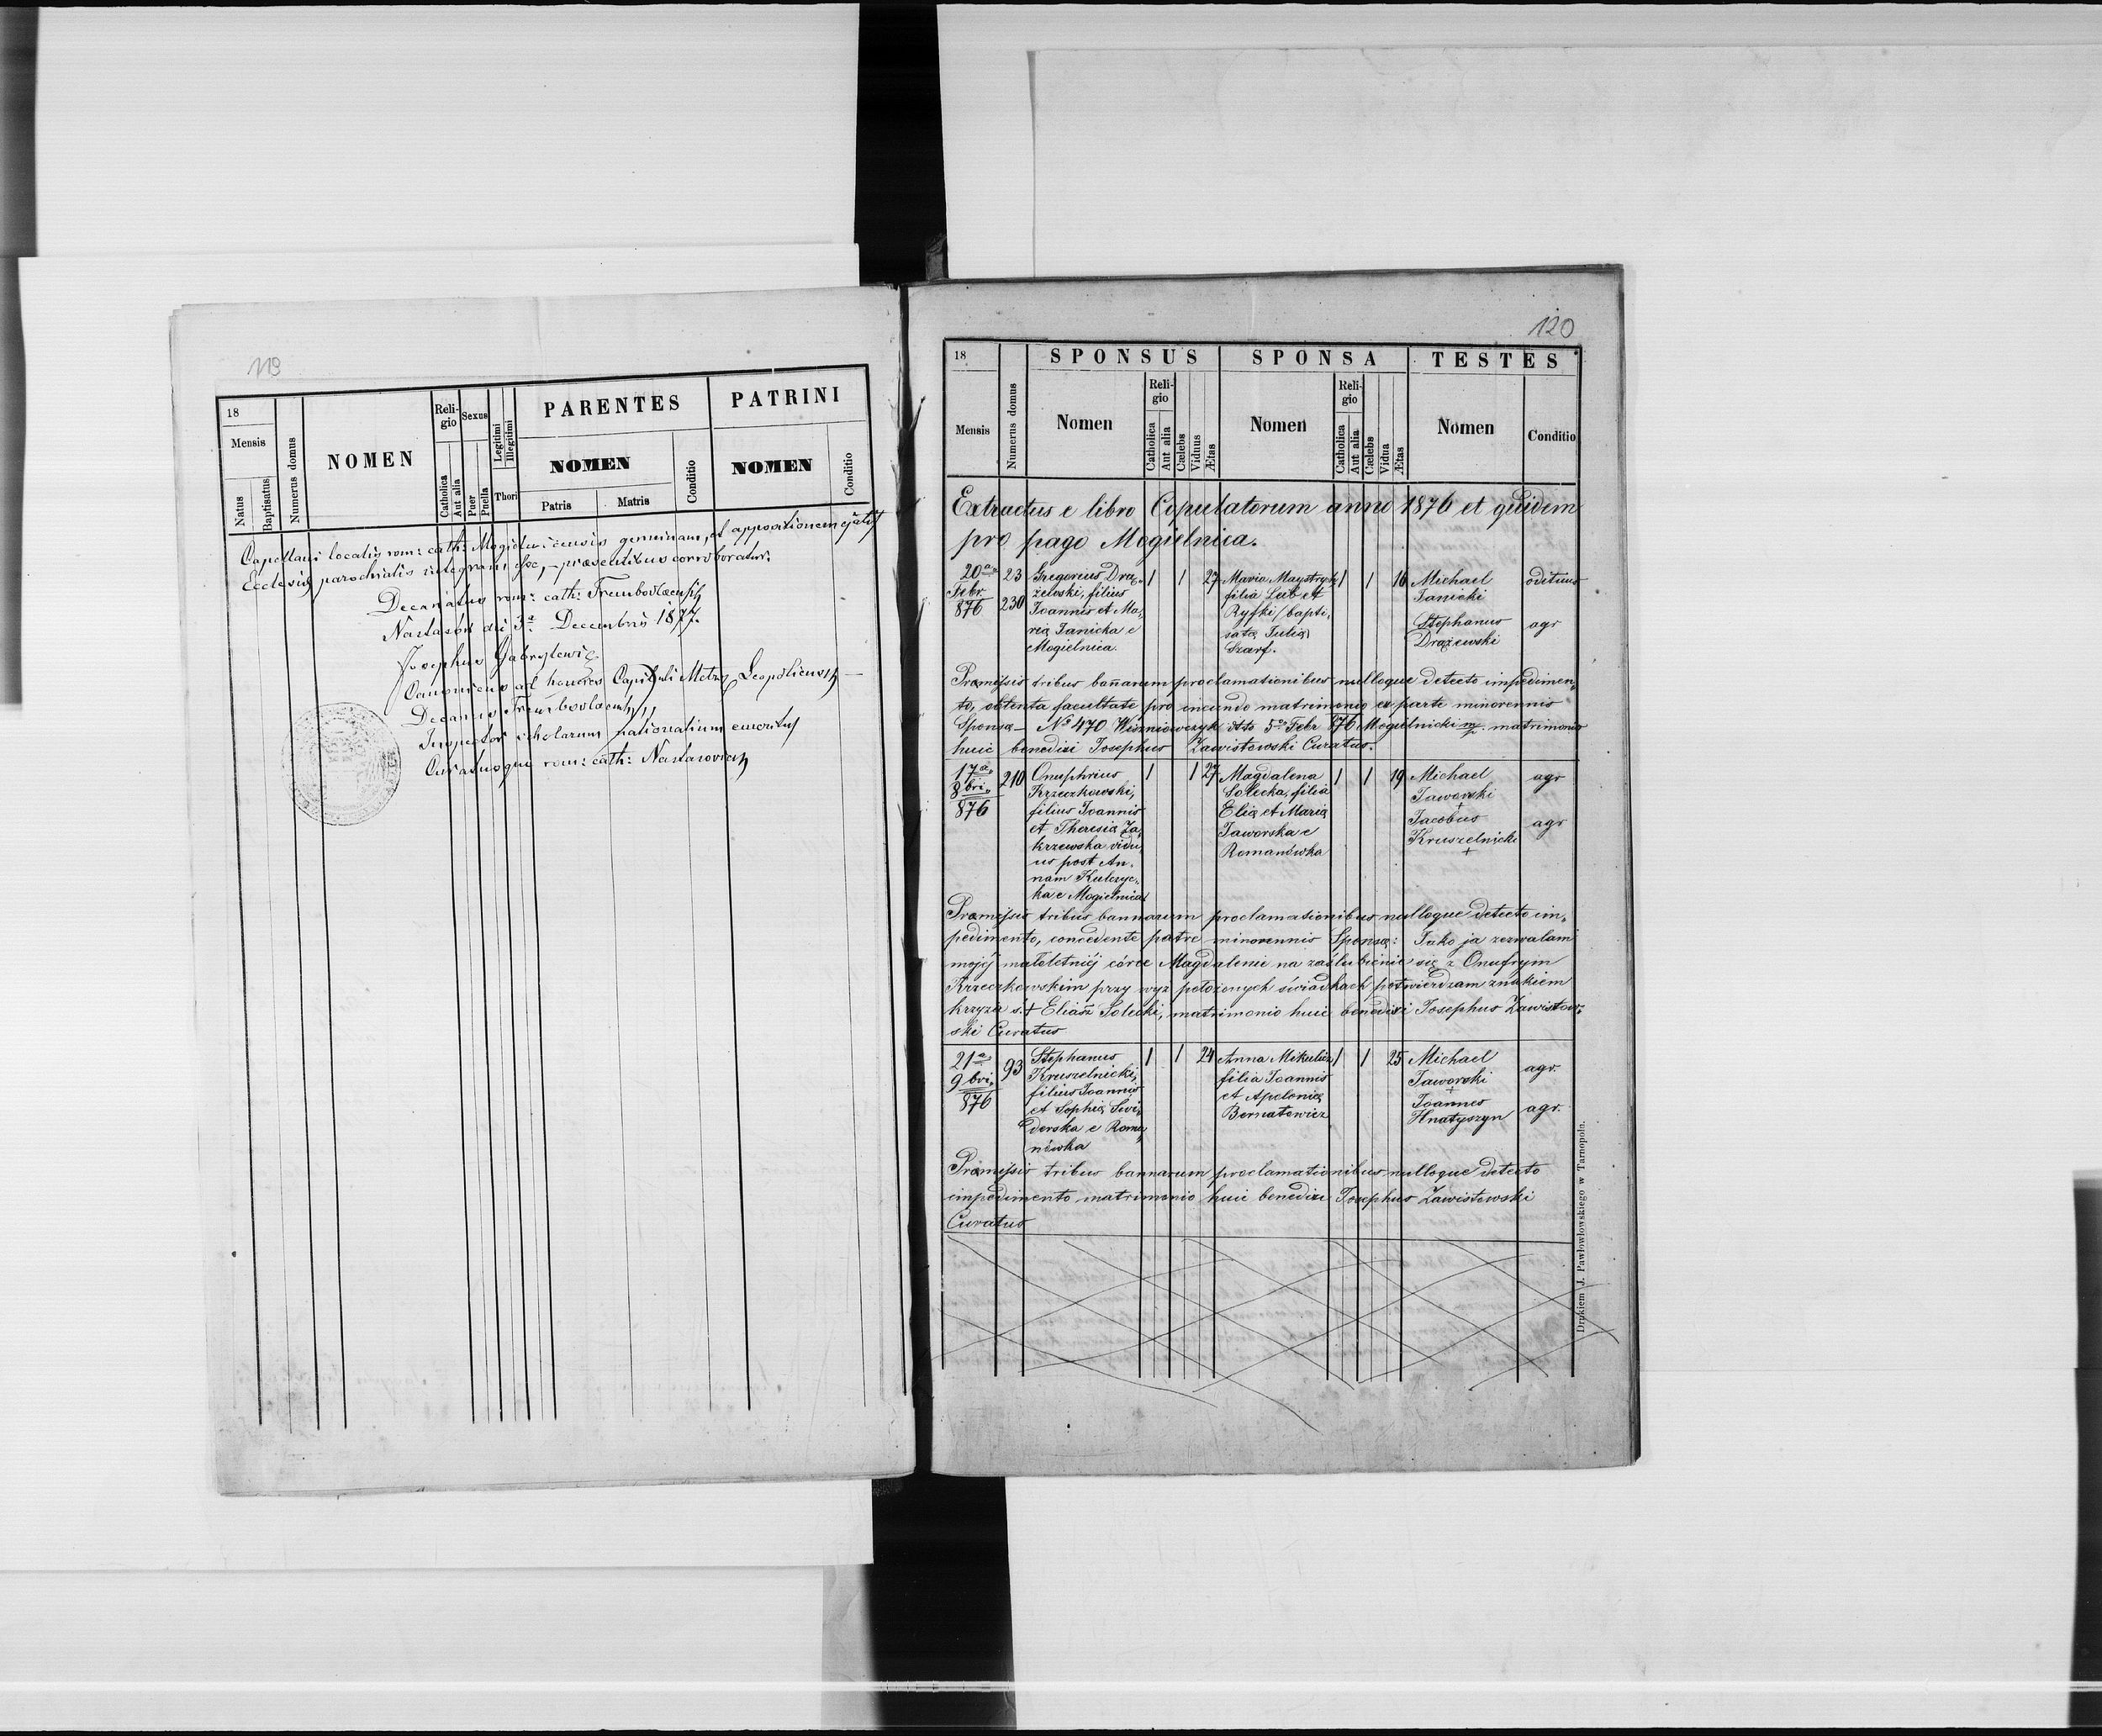 119
18
Mensis
Natus
Baptisatus
Numerus domus
NOMEN
Religio
Catholica
Aut alia
Sexus
Puer
Puella
Legitimi
Illegitimi
Thori
PARENTES
NOMEN
Patris
Matris
Conditio
PATRINI
NOMEN
Conditio
Capellani localis rom: cath: genuinam, et appositionem
Ecclesiæ parochialis integram esse, præsentibus corroboratur.
Decanatus rom: cath: Trembovlaensis
Nastasów die 3a Decembris 1877.
Josephus Gabrylewicz
Canonicus ad honores Capituli Metro Leopoliensis
Decanus Trembovlaensis,
Inspector scholarum nationalium emeritus
Curatusque rom: cath: Nastasoviensis
120
18
Mensis
Numerus domus
SPONSUS
Nomen
Religio
Catholica
Aut alia
Cælebs
Viduus
Ætas
SPONSA
Nomen
Religio
Catholica
Aut alia
Cælebs
Vidua
Ætas
TESTES
Nomen
Conditio
Extractus e libro Copulatorum anno 1876 et quidem
pro pago Mogielnica.
20a Febr 876
23
230
Gregorius Dra„
żewski, filius
Joannis et Ma„
ria Janicka e
Mogielnica.
1 1 27
Maria Maystryk
filia Leib et
Ryfki (bapti„
sata Julia)
Szarf.
1 1 16
Michael
Janicki
Stephanus
Drążewski
agr
Præmissis tribus banarum proclamationibus nulloque detecto impedimen„
to, obtenta facultate pro ineundo matrimonio ex parte minorennis
Sponsæ – No 470 Wiśniowczyk dto 5 Febr 876 Mogielnicki mp. matrimonio
huic benedixi Josephus Zawistowski Curatus.
17a 8bri„ 876
210
Onuphrius
Krzeczkowski,
filius Joannis
et Theresia Za„
krzewska vidu„
us post An„
nam Kulczyc„
ka e Mogielnica
1 1 27
Magdalena
Solecka, filia
Elia et Maria
Jaworska e
Romanówka
1 1 19
Michael
Jaworski
+
Jacobus
Kruszelnicki
+
agr
agr
Præmissis tribus bannarum proclamationibus nulloque detecto im„
pedimento, concedente patre minorennis Sponsæ: Jako ja zezwalam
mojéj małoletniéj córce Magdalenie na zaślubienie się z Onufrym
Krzeczkowskim przy wyż położonych świadkach potwierdzam znakiem
krzyża ś. + Eliasz Solecki, matrimonio huic benedixi Josephus Zawistow„
ski Curatus
21a 9bri„ 876
93
Stephanus
Kruszelnicki,
filius Joannis
et Sophia Świ„
derska e Roma„
nówka
1 1 24
Anna Mikulicz
filia Joannis
et Apolonia
Bernatowicz
1 1 25
Michael
Jaworski
+
Joannes
Hnatyszyn
agr.
agr.
Præmissis tribus bannarum proclamationibus nulloque detecto
impedimento matrimonio huic benedixi Josephus Zawistowski
Curatus
Drukiem J. Pawłowskiego w Tarnopolu.